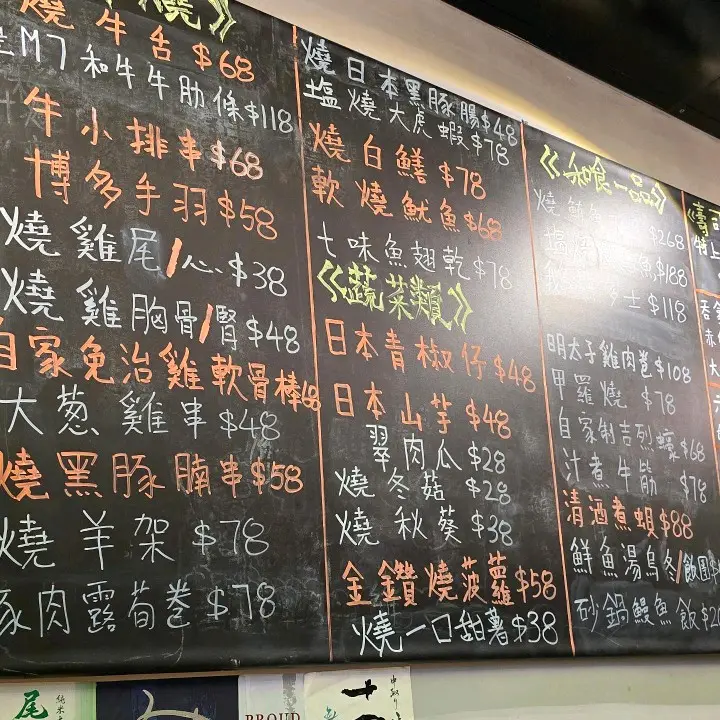 燒》
燒牛舌$68
M7和牛牛肋條$118
牛小排串$68
博多手羽$58
燒雞尾/心$38
燒雞胸骨/腎$48
自家免治雞軟骨棒$48
大葱雞串$48
燒黑豚腩串$58
燒羊架$78
豚肉露荀卷$78
燒日本黑豚腸$48
塩燒大虎蝦$78
燒白鱔$78
軟燒魷魚$68
七味魚翅乾$78
《蔬菜類》
日本青椒仔$48
日本山芋$48
翠肉瓜$28
燒冬菇$28
燒秋葵$38
金鑽燒菠蘿$58
燒一口甜薯$38
《和食一品》
$268
魚$188
多士$118
明太子雞肉卷$108
甲羅燒$78
自家制吉列蠔$68
汁煮牛筋$78
清酒煮蜆$88
鮮魚湯烏冬/飯團
砂鍋鰻魚飯
《壽司
特上
赤
大
尾
純米
PROUD
十
中取り